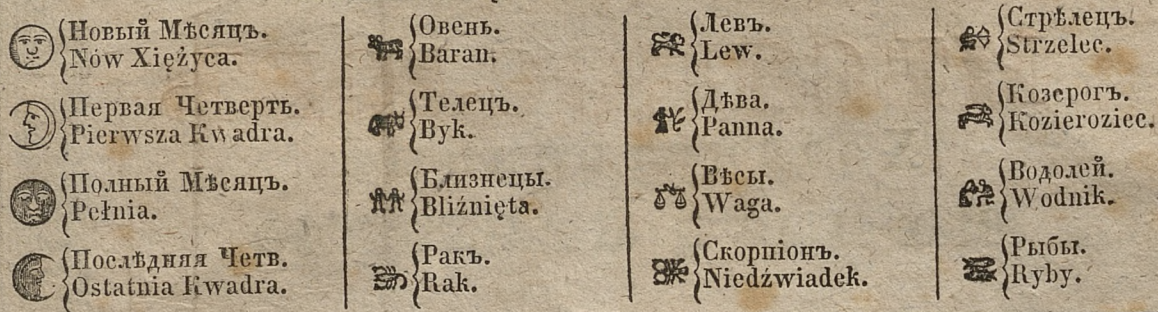 Новый Мѣсяцъ.
Nów Xiężyca.
Первая Четверть.
Pierwsza Kwadra.
Полный Мѣсяцъ.
Pełnia.
Послѣдняя Четв.
Ostatnia Kwadra.
Овень.
Baran.
Телецъ.
Byk.
Близнецы.
Bliźnięta.
Ракъ.
Rak.
Левъ.
Lew.
Дѣва.
Panna.
Вѣсы.
Waga.
Скорпіонъ.
Niedźwiadek.
Стрѣлецъ.
Strzelec.
Козерогъ.
Kozieroziec.
Водолей.
Wodnik.
Рыбы.
Ryby.